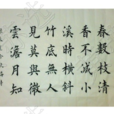 春數枝清
香不減小
溪時橫斜
竹底無人
見莫與微
雲澹月知